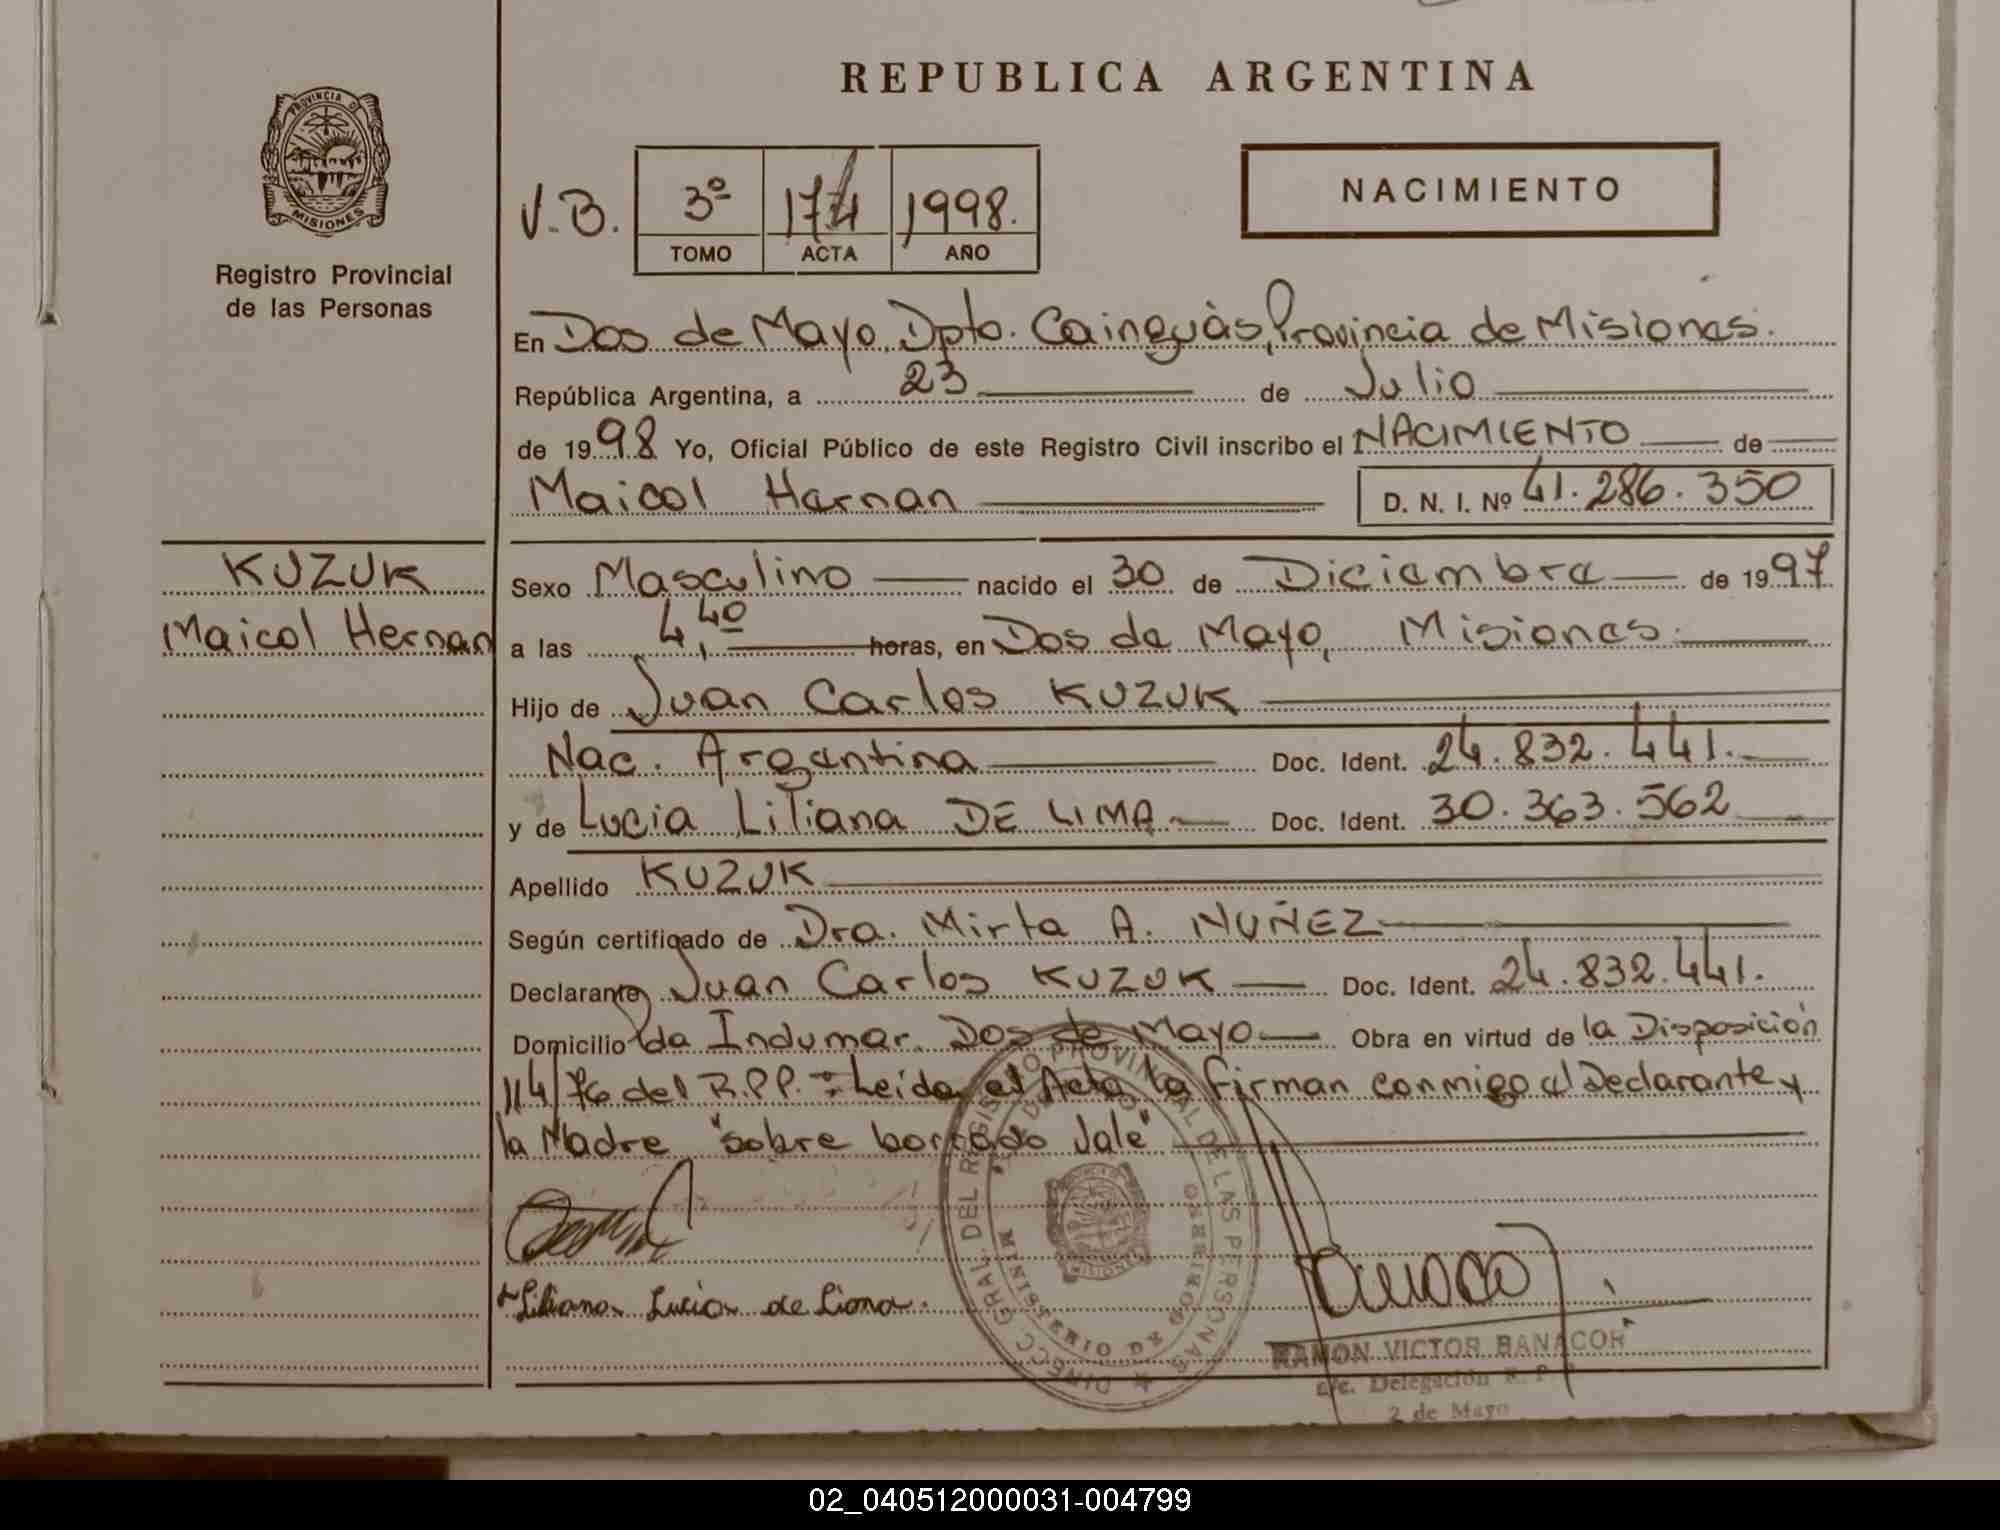 REPUBLICA ARGENTINA
PROVINCIA DE
MISIONES
Registro Provincial
de las Personas
V.B.
3º 174 1998.
TOMO ACTA AÑO
NACIMIENTO
En Dos de Mayo, Dpto. Cainguàs, Provincia de Misiones.
República Argentina, a 23 de Julio
de 1998 Yo, Oficial Público de este Registro Civil inscribo el NACIMIENTO de
Maicol Hernan D. N. I. Nº 41.286.350
KUZUK
Maicol Hernan
Sexo Masculino nacido el 30 de Diciembre de 1997
a las 4,40 horas, en Dos de Mayo, Misiones.
Hijo de Juan Carlos KUZUK
Nac. Argentina Doc. Ident. 24.832.441.
y de Lucia Liliana DE LIMA Doc. Ident. 30.363.562
Apellido KUZUK
Según certificado de Dra. Mirta A. NUÑEZ
Declarante Juan Carlos KUZUK Doc. Ident. 24.832.441.
Domicilio Indumar Dos de Mayo Obra en virtud de la Disposición
114/76 del R.P.P. = Leida el Acta la firman conmigo el Declarante y
la Madre "sobre borrado Vale"
Liliana Lucia de Lima.
DIRECC GRAL. DEL REGISTRO PROVINCIAL DE LAS PERSONAS
MINISTERIO DE GOBIERNO
MISIONES
RAMON VICTOR BANACOR
Delegación R. P.
2 de Mayo
02_040512000031-004799